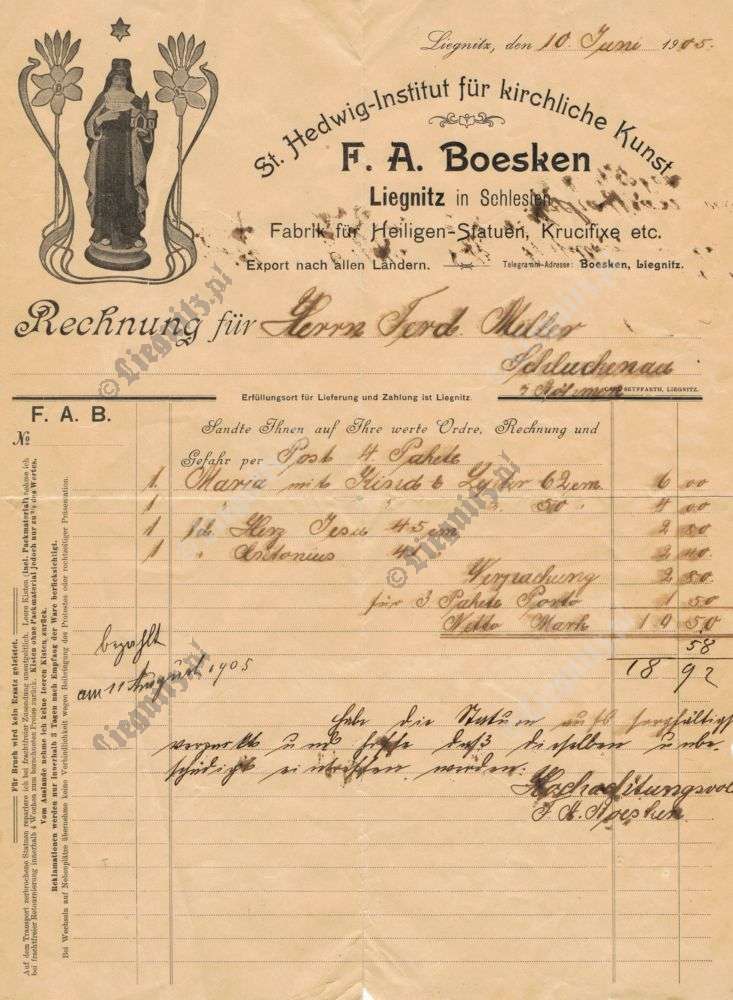 Liegnitz, den 10. Juni 1905.
St. Hedwig-Institut für kirchliche Kunst
F. A. Boesken
Liegnitz in Schlesien
Fabrik für Heiligen-Statuen, Krucifixe etc.
Export nach allen Ländern. Telegramm-Adresse: Boesken, Liegnitz.
Rechnung für Herrn Ferd. Meller
Schluckenau
Böhmen
SEYFFARTH, LIEGNITZ.
Erfüllungsort für Lieferung und Zahlung ist Liegnitz.
F. A. B.
No
Sandte Ihnen auf Ihre werte Ordre, Rechnung und
Gefahr per Post 4 Pakete
1 Maria mit Kind 62 cm 6 00
1 " " 50 " 4 00
1 Herz Jesu 45 cm 2 80
1 " Antonius 2 40
Verpackung 2 80
für 3 Pakete Porto 1 50
Netto Mark 19 50
58
18 92
bezahlt
am 11 August 1905
habe die Statuen sorgfältigst
verpackt und hoffe daß dieselben unbe-
schädigt eintreffen werden.
Hochachtungsvoll
F. A. Boesken
Für Bruch wird kein Ersatz geleistet.
Auf dem Transport zerbrochene Statuen repariere ich bei frachtfreier Zusendung unentgeltlich. Leere Kisten (incl. Packmaterial) nehme ich
bei frachtfreier Retournierung innerhalb 4 Wochen zum berechneten Preise zurück. Kisten ohne Packmaterial jedoch nur zu ⅔ des Wertes.
Vom Auslande nehme ich keine leeren Kisten zurück.
Reklamationen werden nur innerhalb 3 Tagen nach Empfang der Ware berücksichtigt.
Bei Wechseln auf Nebenplätze übernehme keine Verbindlichkeit wegen Beibringung des Protestes oder rechtzeitiger Präsentation.
© Liegnitz.pl
© Liegnitz.pl
Liegnitz.pl